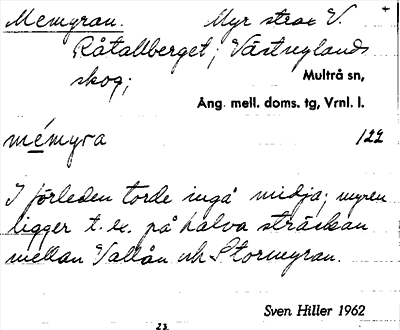 Memyran. Myr strax V.
Råtallberget; Västnylands
skog;
Multrå sn,
Ång. mell. doms. tg, Vrnl. l.
mémyra 122
I förleden torde ingå midja; myren
ligger t. ex. på halva sträckan
mellan Vallån och Stormyran.
Sven Hiller 1962
23.